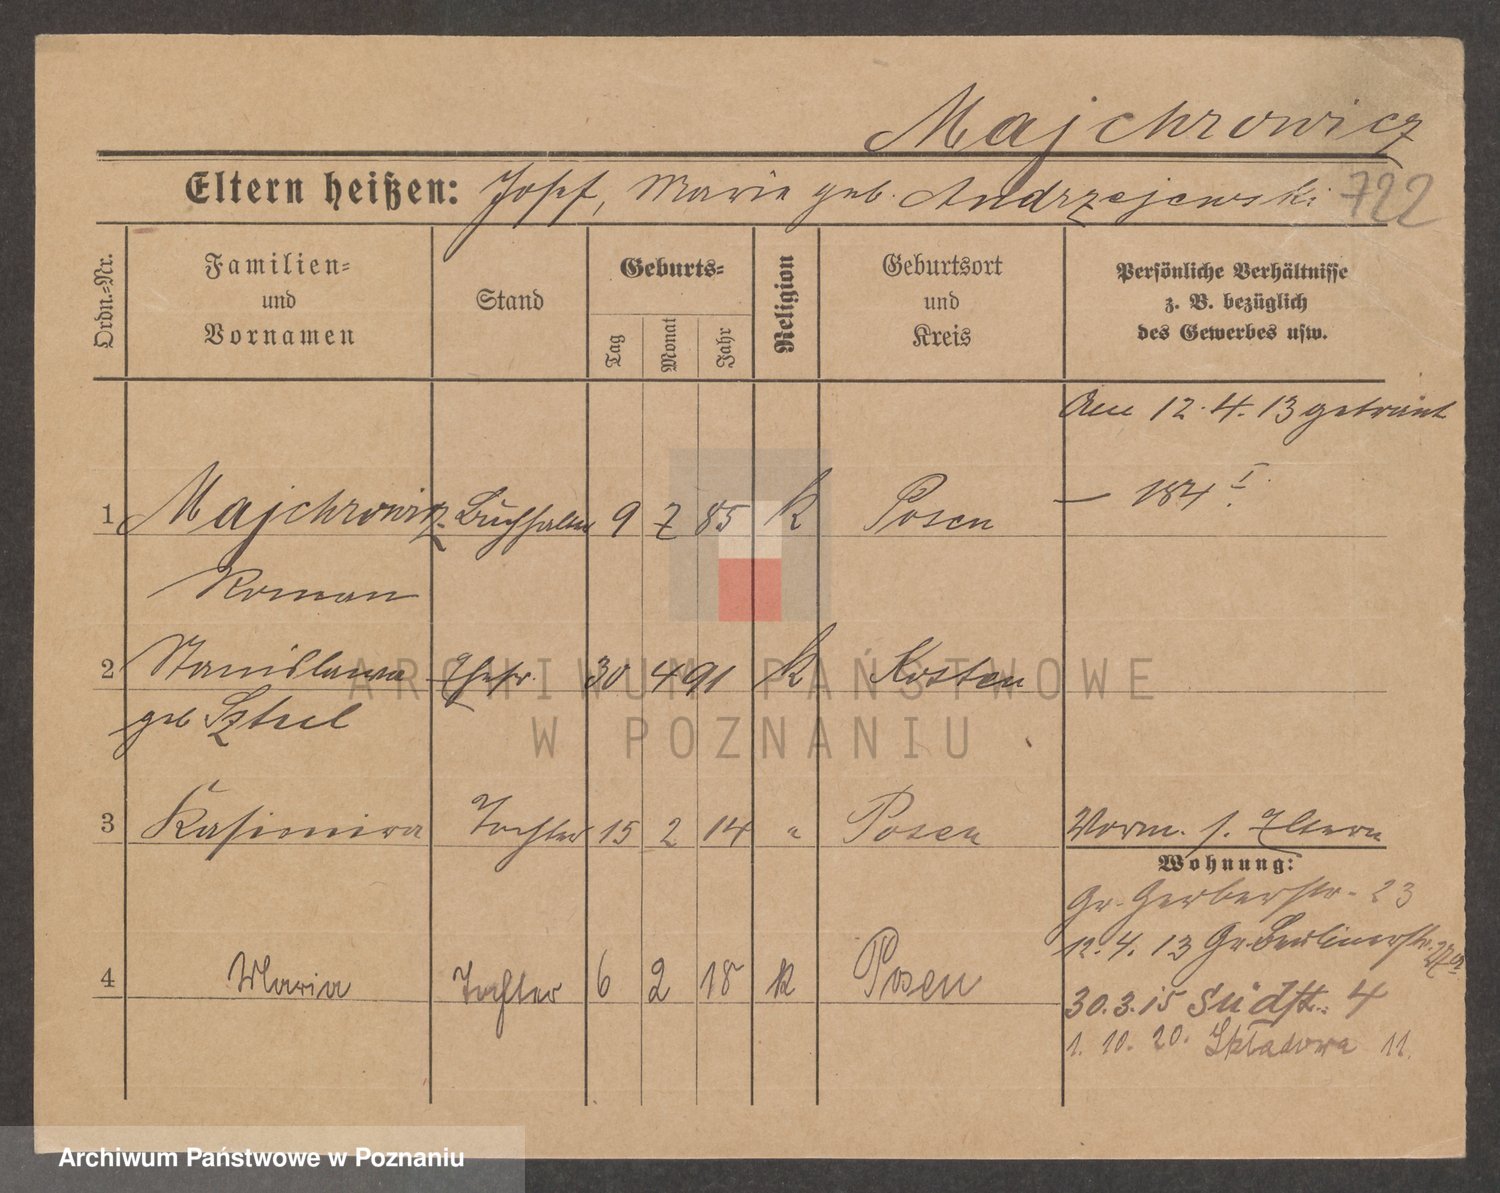 Majchrowicz
Eltern heißen: Josef, Marie geb. Andrzejewski 722
Ordn.-Nr.
Familien-
und
Vornamen
Stand
Geburts-
Tag
Monat
Jahr
Religion
Geburtsort
und
Kreis
Persönliche Verhältnisse
z. B. bezüglich
des Gewerbes usw.
Am 12.4.13 getraut
1 Majchrowicz Buchhalter 9 7 85 K Posen — 184 I.
Roman
2 Stanislawa Ehefr. 30 4 91 K Kosten
geb.
3 Kasimira Tochter 15 2 14 " Posen Vorm. s. Eltern
Wohnung:
Gr. Gerberstr. 23
12.4.13 Gr. Berlinerstr. 27a
4 Maria Tochter 6 2 18 K Posen
30.3.15 Südstr. 4
1. 10. 20. Składowa 11.
ARCHIWUM PAŃSTWOWE
W POZNANIU
Archiwum Państwowe w Poznaniu